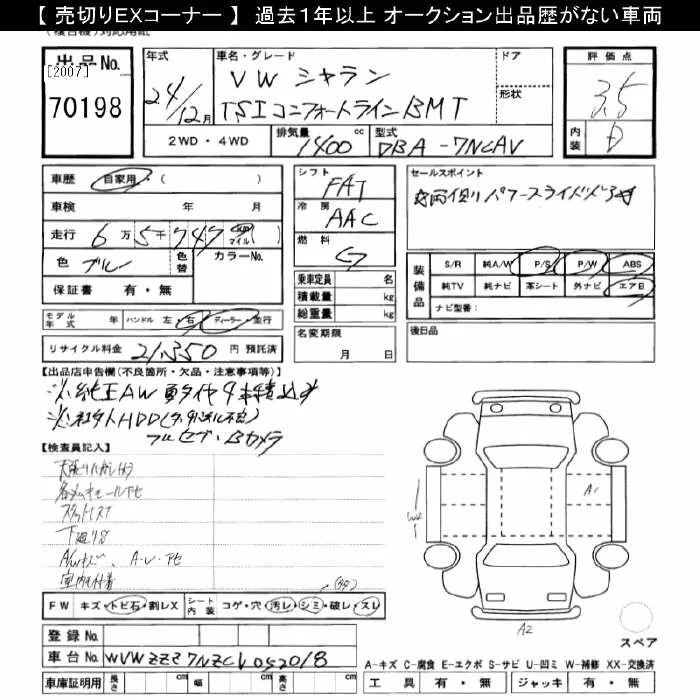 【 売切りEXコーナー 】 過去1年以上 オークション出品歴がない車両
出品No.
[2007]
70198
年式
24/12月
車名・グレード
VW シャラン
TSIコンフォートラインBMT
ドア
形状
評価点
3.5
内装
D
2WD・4WD
排気量
1400 cc
型式
DBA-7NCAV
車歴
自家用・( )
車検 年 月
走行 6万5千747 マイル( )
色 ブルー
色替
カラーNo.
保証書 有・無
モデル年式 年
ハンドル 左・右
ディーラー・並行
リサイクル料金 21,350 円 預託済
シフト
FAT
冷房
AAC
燃料
G
乗車定員 名
積載量 kg
総重量 kg
名変期限
月 日
セールスポイント
両側パワースライドドア
装備品
S/R 純A/W P/S P/W ABS
純TV 純ナビ 革シート 外ナビ エアB
ナビ型番:
後日品
【出品店申告欄(不良箇所・欠品・注意事項等)】
※純正AW 夏タイヤ4本積込み
※社外HDD
フルセグ・Bカメラ
【検査員記入】
下廻りS
FW キズ・トビ石・割レX
シート内装 コゲ・穴・汚レ・シミ・破レ・スレ
登録No.
車台No. WVWZZZ7NZCV052018
車庫証明用 長さ cm 幅 cm 高さ cm
W2
A1
A2
スペア
A-キズ C-腐食 E-エクボ S-サビ U-凹ミ W-補修 XX-交換済
工具 有・無 ジャッキ 有・無